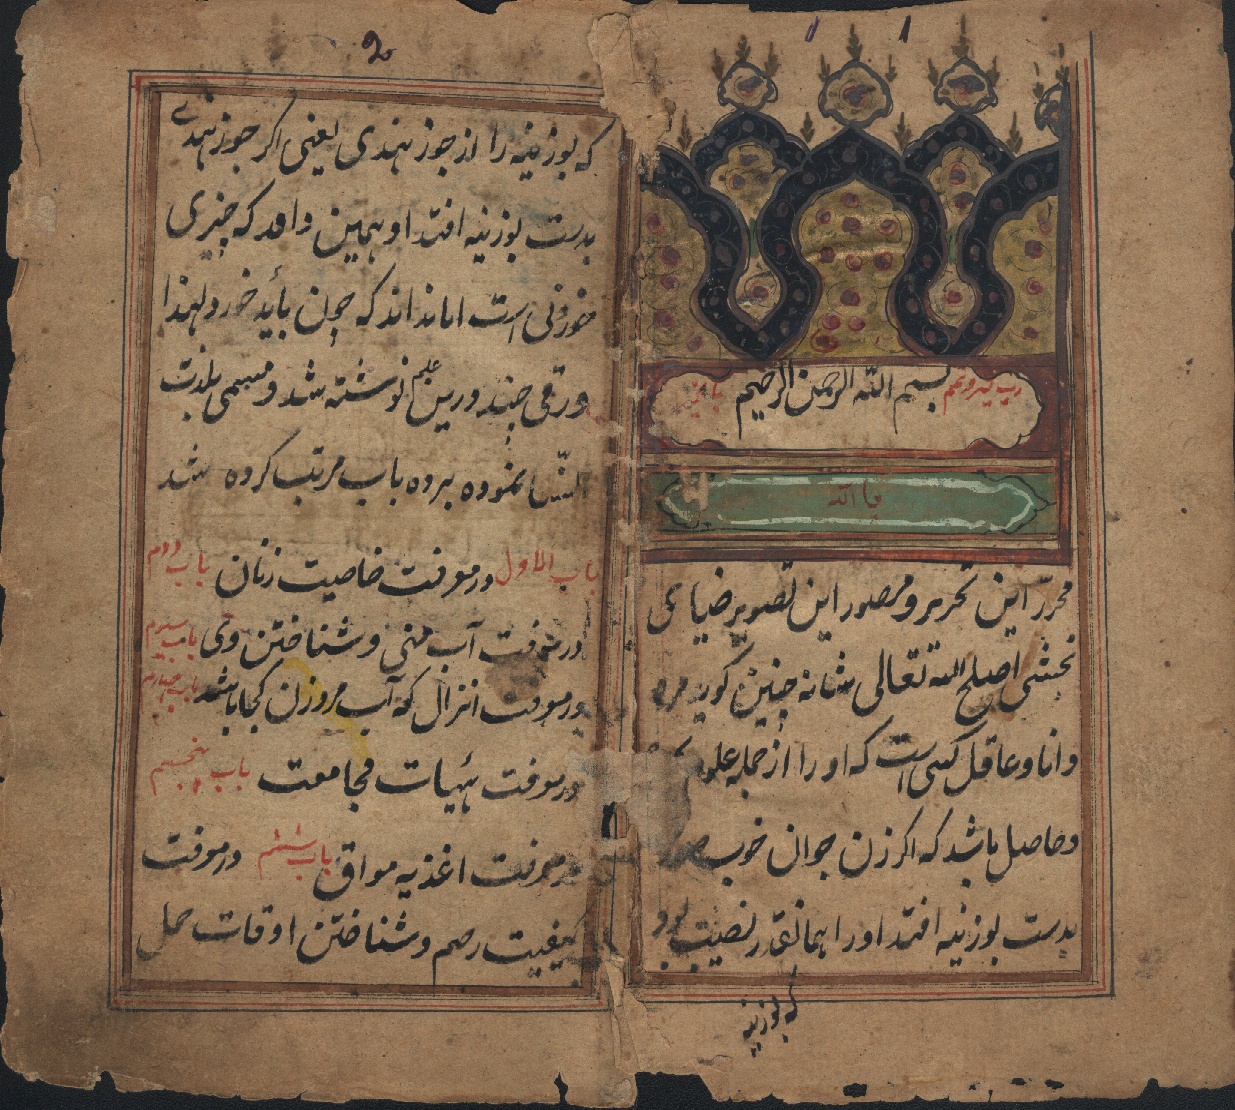 ۱
رب یسر و تمم بسم الله الرحمن الرحیم بالخیر
یا الله
محرر این تحریر و مصور این تصویر ضیای
نخشبی اصلح الله تعالی شانه چنین گوید مرد
دانا و عاقل کسی است که او را از جمله علوم
و حاصل باشد که اگر زن جوان خوب
بدست بوزنیه افتد او را همانقدر نصیب بود
که بوزنیه
۲
که بوزنیه را از جوز هندی یعنی اگر جوز هندی
بدست بوزنیه افتد او همین داند که چیزی
خوردنی است اما نداند که چون باید خورد لهذا
ورقی چند درین علم نوشته شد و مسمی بلذت
النسا نموده بر ده باب مرتب کرده شد
باب الاول در معرفت خاصیت زنان باب دوم
در معرفت آب منی و شناختن وی باب سیوم
در معرفت انزال که آب مرد و زن کجا باشد باب چهارم
در معرفت هئیات مجامعت باب پنجم
در معرفت اغذیه موافق باب ششم در معرفت
کیفیت رحم و شناختن اوقات حمل